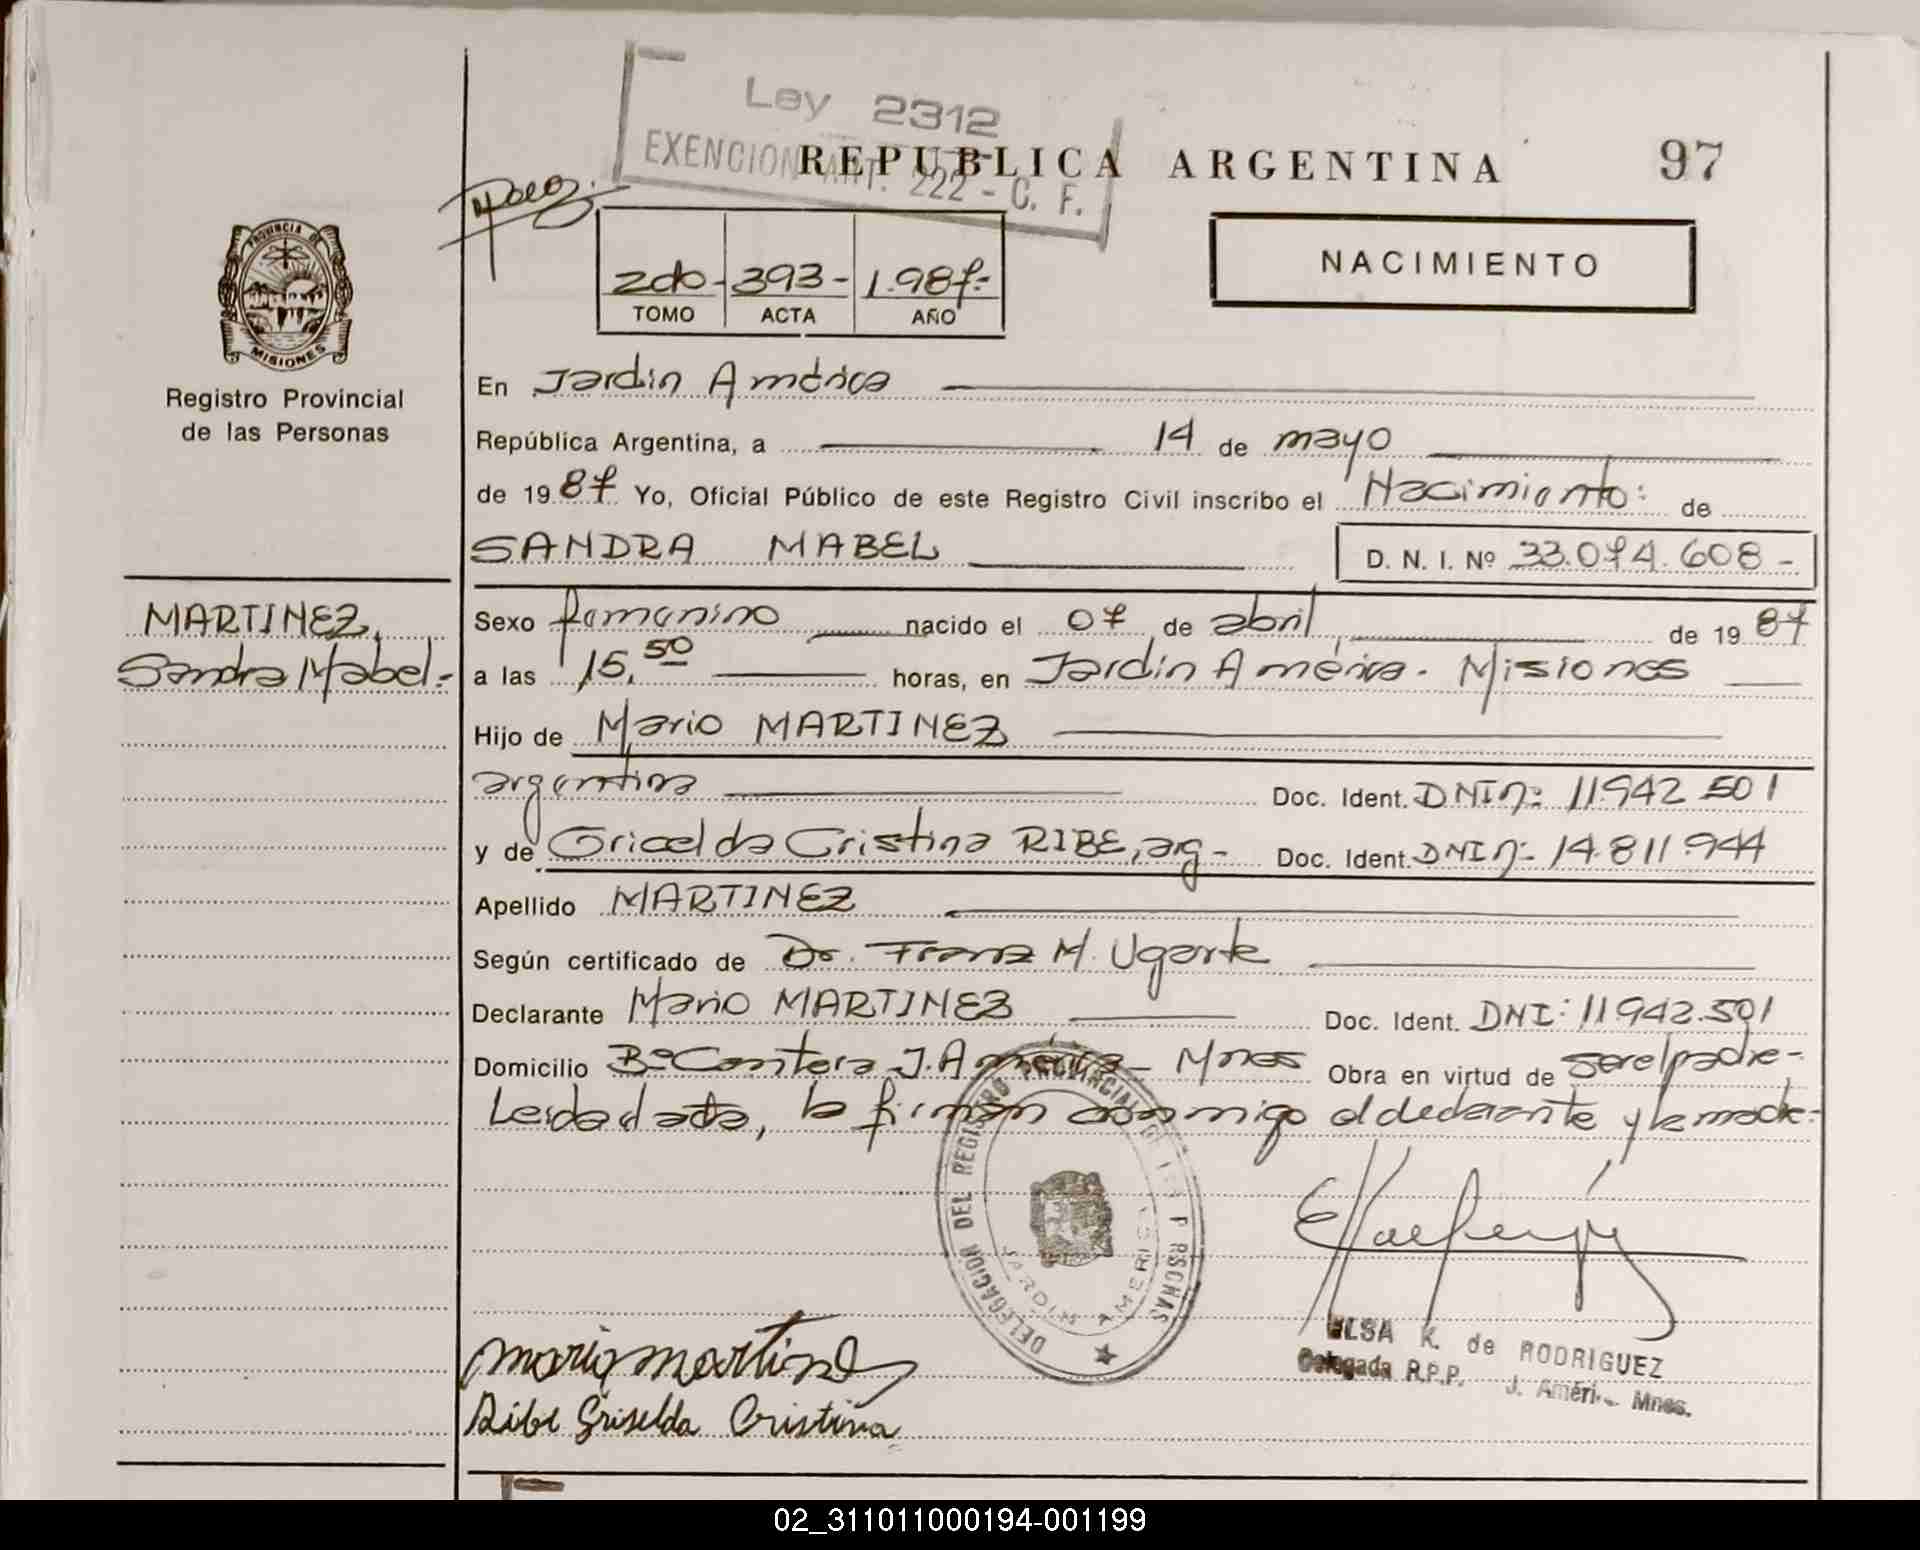 Ley 2312
EXENCION ART. 222 - C. F.
REPUBLICA ARGENTINA
97
2do - 393 - 1.987.-
TOMO ACTA AÑO
NACIMIENTO
PROVINCIA DE
MISIONES
Registro Provincial
de las Personas
En Jardin América
República Argentina, a 14 de mayo
de 1987 Yo, Oficial Público de este Registro Civil inscribo el Nacimiento: de
SANDRA MABEL D. N. I. Nº 33.074.608 -
MARTINEZ,
Sandra Mabel.-
Sexo femenino nacido el 07 de abril, de 1987
a las 15,50 horas, en Jardin América. Misiones
Hijo de Mario MARTINEZ
argentina Doc. Ident. DNIn: 11.942.501
y de Gricelda Cristina RIBE, arg- Doc. Ident. DNIn- 14.811.944
Apellido MARTINEZ
Según certificado de Dr. Franz M. Ugarte
Declarante Mario MARTINEZ Doc. Ident. DNI: 11.942.501
Domicilio Bº Cantera J. América - Mnes Obra en virtud de ser el padre-
Leida el acta, la firman conmigo el declarante y la madre.-
DELEGACION DEL REGISTRO PROVINCIAL DE LAS PERSONAS
JARDIN AMERICA
ELSA K. de RODRIGUEZ
Delegada R.P.P. J. Améri. Mnes.
Mario Martinez
Ribe Griselda Cristina
02_311011000194-001199